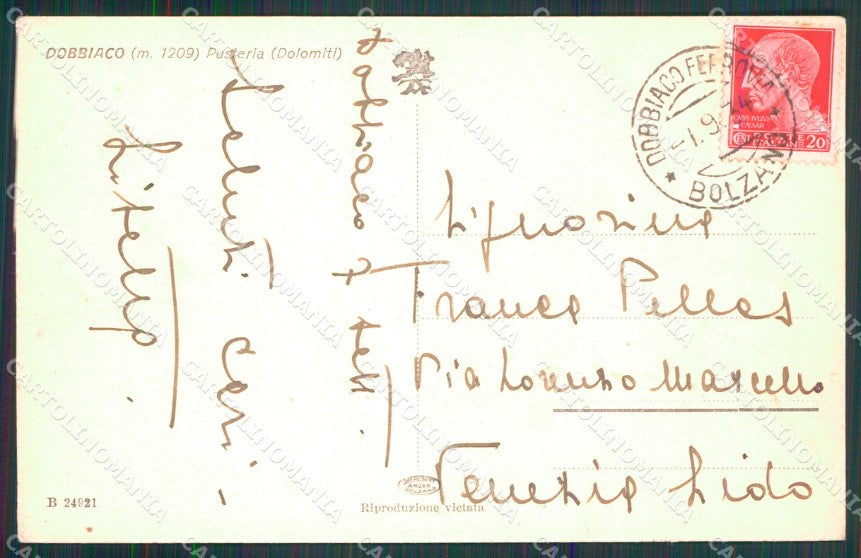 DOBBIACO (m. 1209) Pusteria (Dolomiti)
Dobbiaco 1 sett.
Saluti cari -
DOBBIACO FERROVIA
-1.9.
BOLZANO
CAIVS IVLIVS
CAESAR
POSTE
ITALIANE
20
Signorina
Franca Pellas
Via Lorenzo Marcello
Venezia Lido
B 24921
Riproduzione vietata
CARTOLINOMANIA